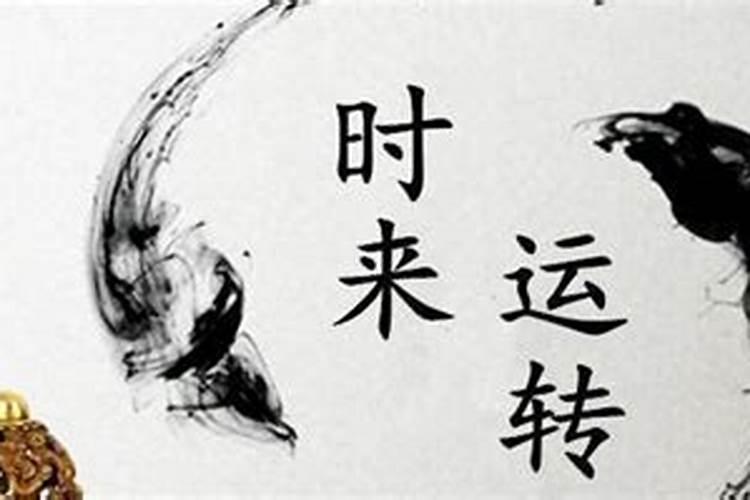 时来
运转